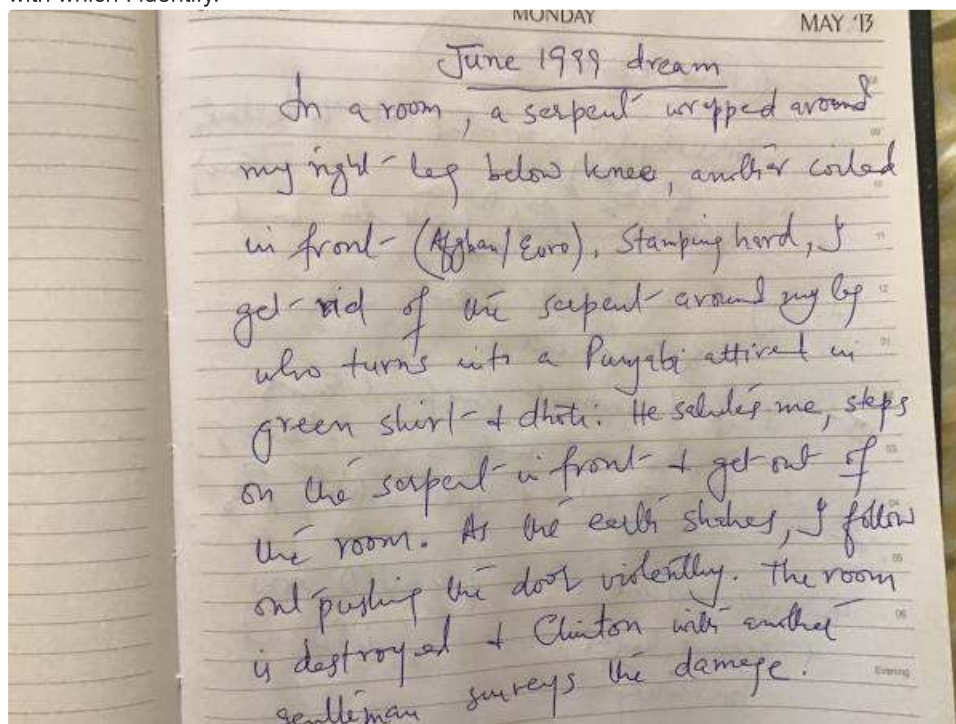 with which I identify.
MONDAY
MAY '13
June 1999 dream
In a room, a serpent wrapped around
my right leg below knee, another coiled
in front (Afghan/Euro). Stamping hard, I
get rid of the serpent around my leg
who turns into a Punjabi attired in
green shirt + dhoti. He salutes me, steps
on the serpent in front + get out of
the room. As the earth shakes, I follow
out pushing the door violently. The room
is destroyed + Clinton with another
gentleman surveys the damage.
08
09
10
11
12
01
03
04
05
06
Evening